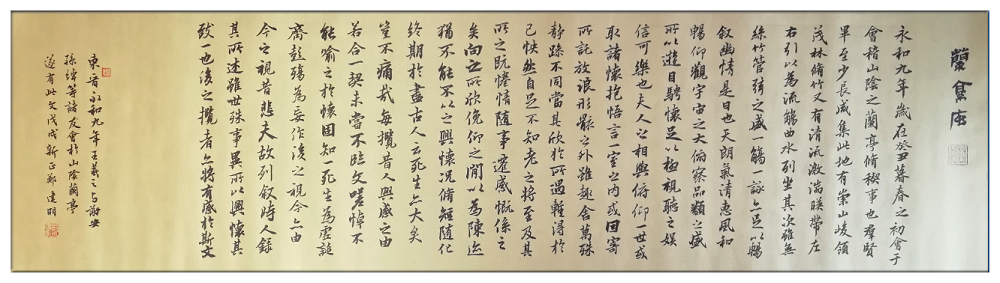 蘭亭序
永和九年歲在癸丑暮春之初會于
會稽山陰之蘭亭脩稧事也羣賢
畢至少長咸集此地有崇山峻領
茂林脩竹又有清流激湍暎帶左
右引以為流觴曲水列坐其次雖無
絲竹管弦之盛一觴一詠亦足以暢
叙幽情是日也天朗氣清惠風和
暢仰觀宇宙之大俯察品類之盛
所以遊目騁懷足以極視聽之娛
信可樂也夫人之相與俯仰一世或
取諸懷抱悟言一室之内或因寄
所託放浪形骸之外雖趣舍萬殊
静躁不同當其欣於所遇暫得於
己怏然自足不知老之將至及其
所之既惓情隨事遷感慨係之
矣向之所欣俛仰之閒以為陳迹
猶不能不以之興懷況脩短隨化
終期於盡古人云死生亦大矣
豈不痛哉每攬昔人興感之由
若合一契未嘗不臨文嗟悼不
能喻之於懷固知死生為虛誕
齊彭殤為妄作後之視今亦由
今之視昔悲夫故列叙時人録
其所述雖世殊事異所以興懷其
致一也後之攬者亦將有感於斯文
東晋永和九年王羲之与謝安
孫綽等諸友會於山陰蘭亭
遂有此文戊戌新正鄭建明